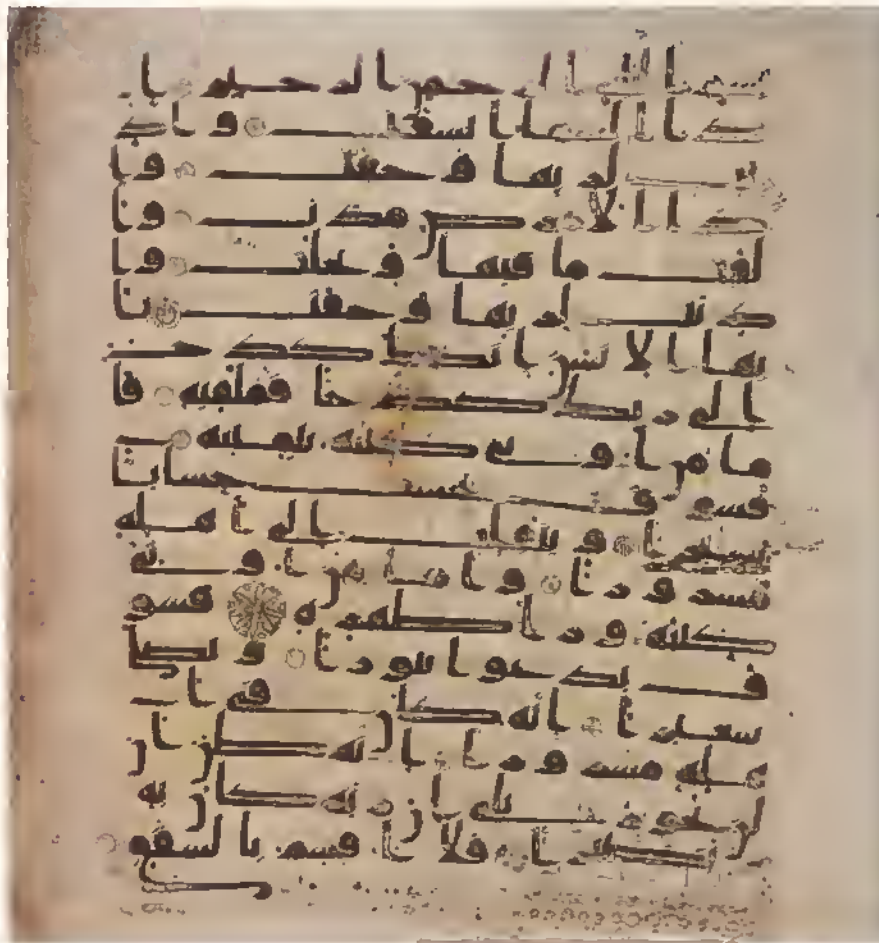 بسم الله الرحمن الرحيم اذا
السما انشقت واذ
نت لربها وحقت وا
ذا الارض مدت وا
لقت ما فيها وتخلت وا
ذنت لربها وحقت يا
يها الانسن انك كادح
الى ربك كدحا فملقيه فا
ما من اوتي كتبه بيمينه
فسوف يحاسب حسابا
يسيرا وينقلب الى اهله
مسرورا واما من اوتي
كتبه ورا ظهره فسو
ف يدعوا ثبورا ويصلى
سعيرا انه كان في ا
هله مسرورا انه ظن ان
لن يحور بلى ان ربه كان به
بصيرا فلا اقسم بالشفق